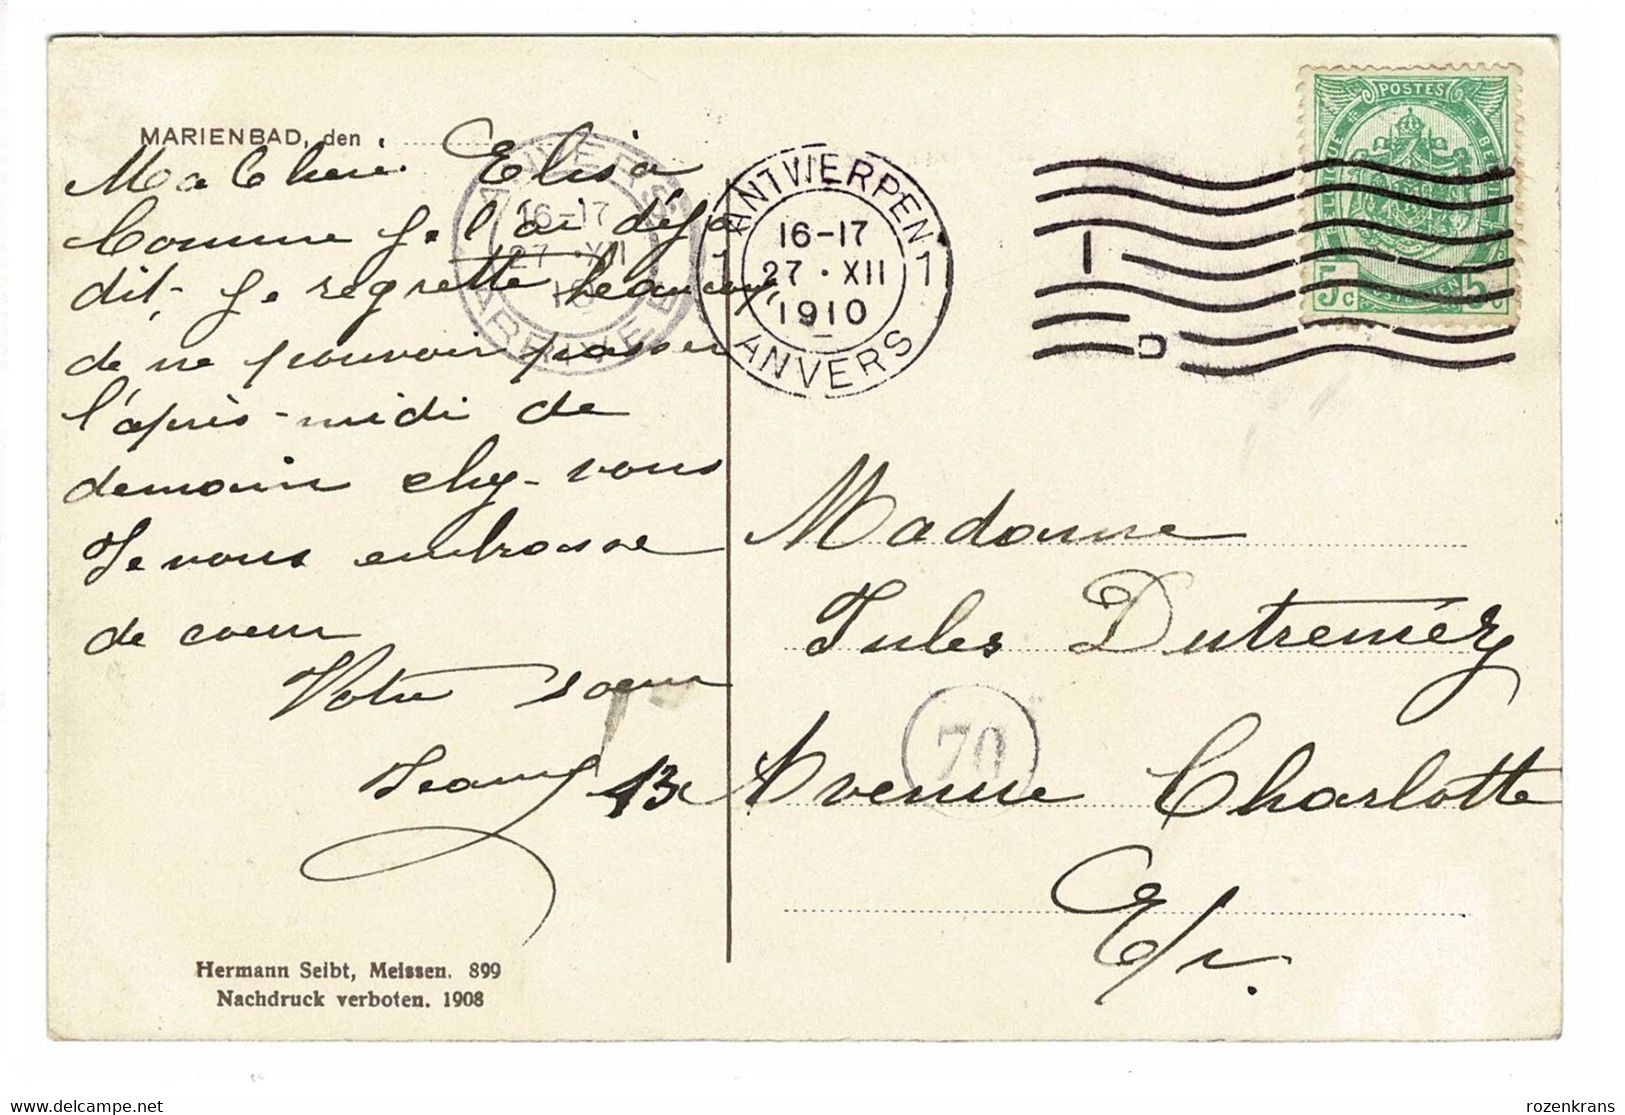 MARIENBAD, den
Ma Cherie Elisa
Comme je l'ai déjà
dit, je regrette beaucoup
de ne pouvoir passer
l'après-midi de
demain chez vous
Je vous embrasse
de coeur
Votre soeur
Jeanne
ANVERS
16-17
27 · XII
10
ARRIVEE
ANTWERPEN
1 1
16-17
27 · XII
1910
ANVERS
POSTES
BELGIQUE
5c 5c
POSTERIJEN
Madame
Jules Dutreméz
13 Avenue Charlotte
70
E/v.
Hermann Seibt, Meissen. 899
Nachdruck verboten. 1908
delcampe.net
rozenkrans